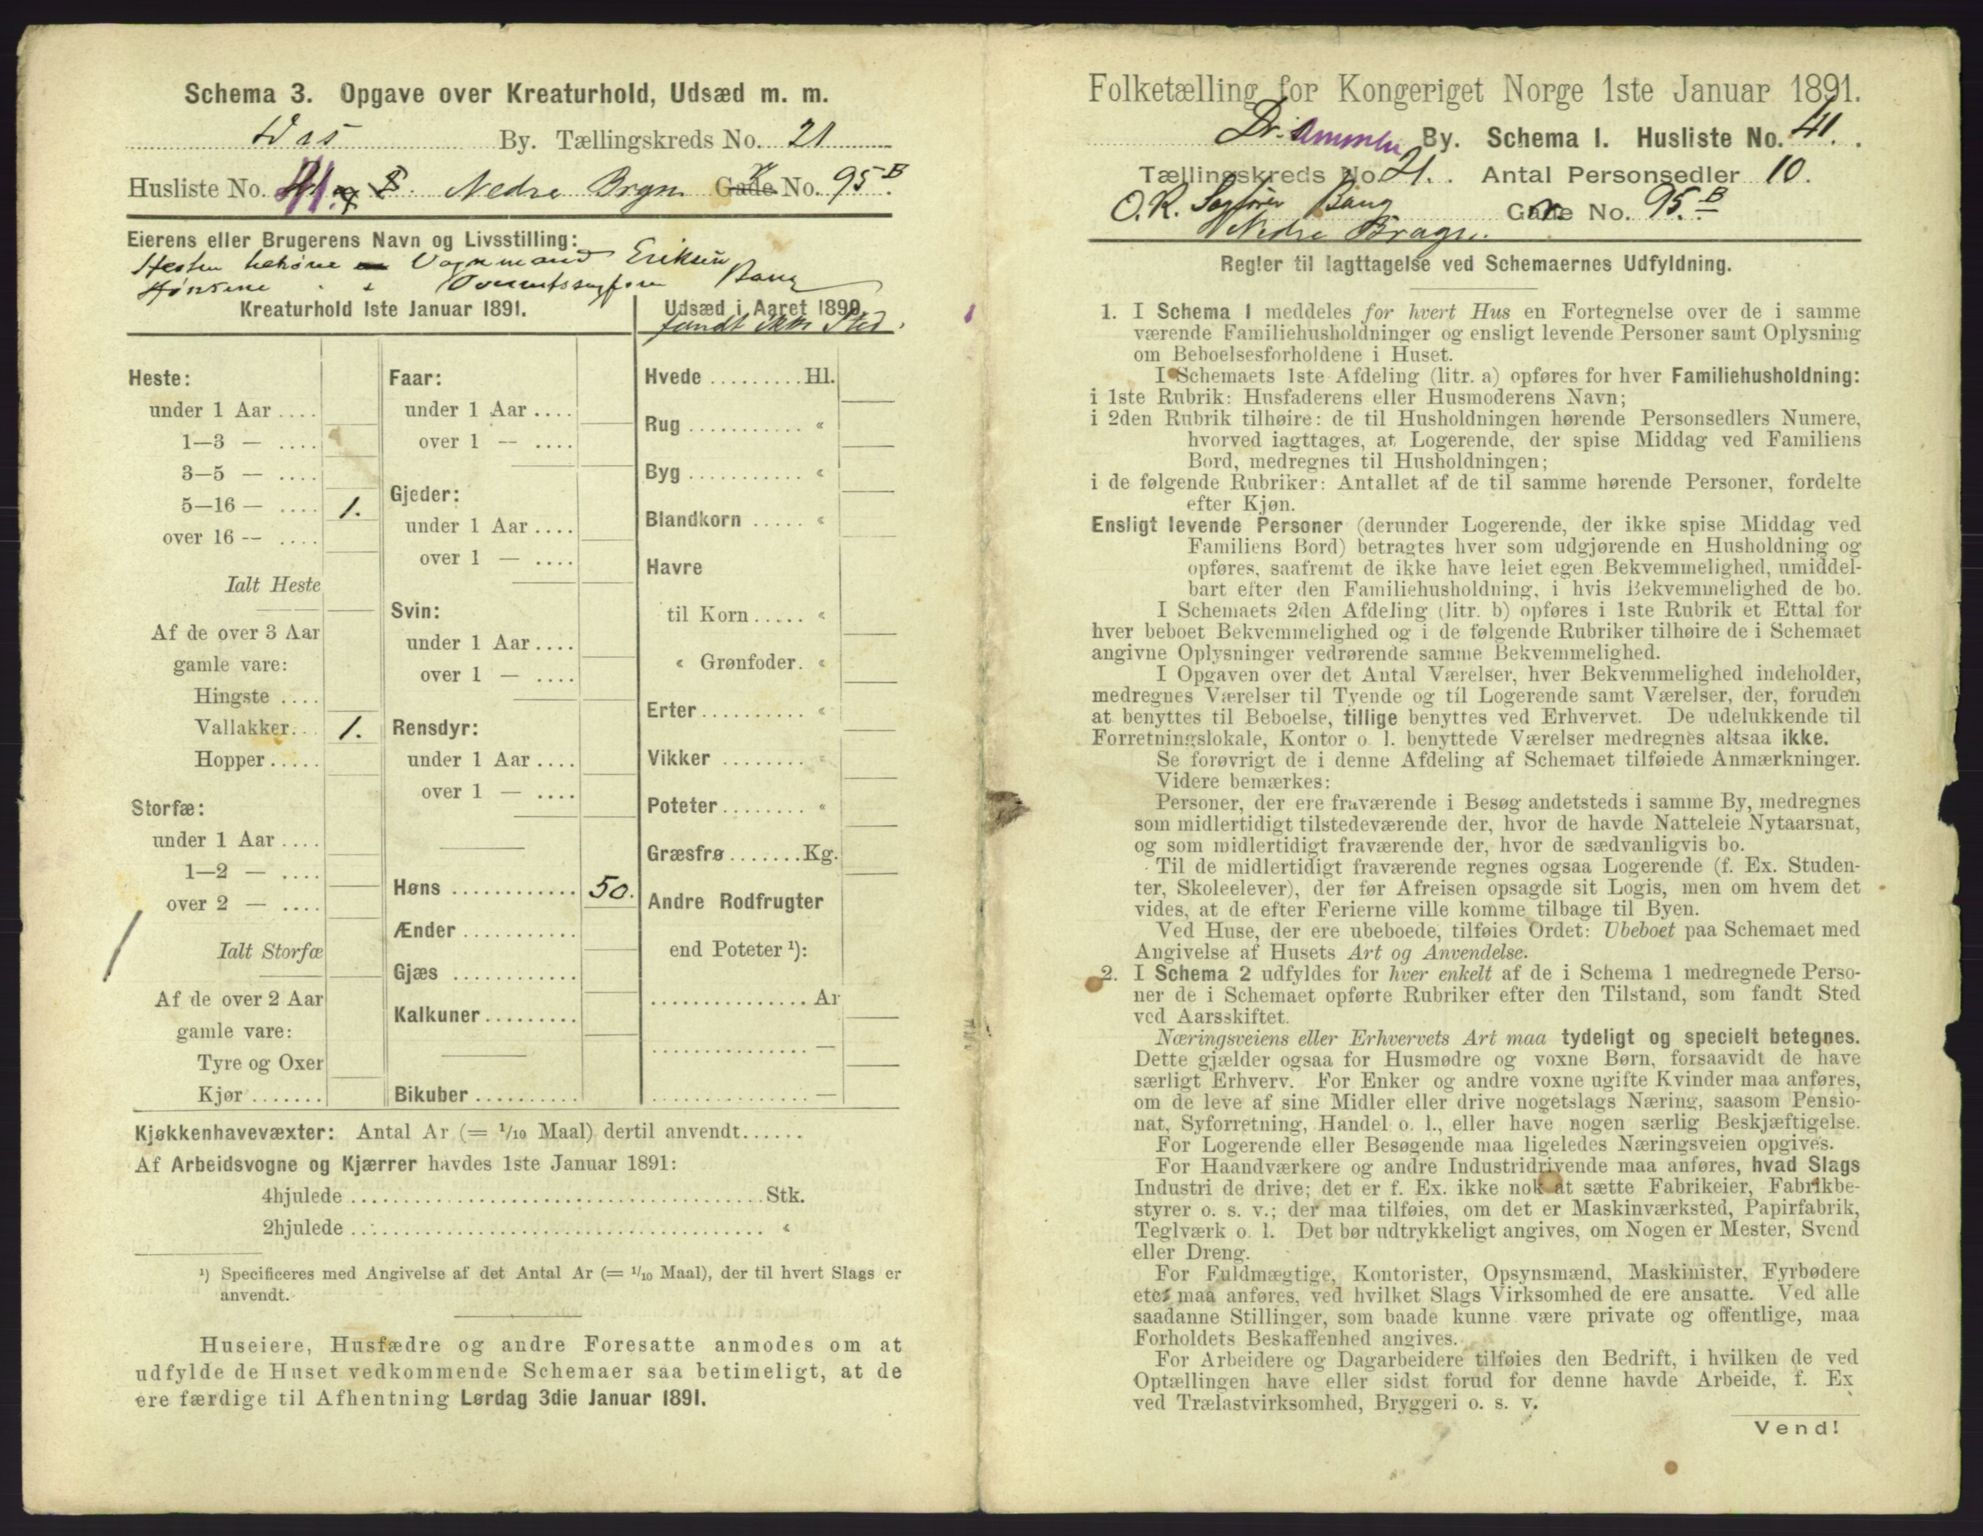 Schema 3. Opgave over Kreaturhold, Udsæd m. m.
By. Tællingskreds No. 21
Husliste No. 41. Nedre Bragn. Gade No. 95 B
Eierens eller Brugerens Navn og Livsstilling:
Hesten Vognmand Eriksen
Hønsene " Overretssagfører Bang
Kreaturhold 1ste Januar 1891.
Heste:
under 1 Aar ....
1—3 — ....
3—5 — ....
5—16 — .... 1.
over 16 — ....
Ialt Heste
Af de over 3 Aar
gamle vare:
Hingste ....
Vallakker... 1.
Hopper .....
Storfæ:
under 1 Aar ....
1—2 — ....
over 2 — ....
Ialt Storfæ
Af de over 2 Aar
gamle vare:
Tyre og Oxer
Kjør .......
Faar:
under 1 Aar ....
over 1 — ....
Gjeder:
under 1 Aar ....
over 1 — ....
Svin:
under 1 Aar ....
over 1 — ....
Rensdyr:
under 1 Aar ....
over 1 — ....
Høns ............ 50.
Ænder ...........
Gjæs ............
Kalkuner .........
Bikuber ..........
Udsæd i Aaret 1890.
fandt ikke Sted.
Hvede ......... Hl.
Rug ........... «
Byg ........... «
Blandkorn ..... «
Havre
til Korn ..... «
« Grønfoder. «
Erter ......... «
Vikker ........ «
Poteter ....... «
Græsfrø ....... Kg.
Andre Rodfrugter
end Poteter ¹):
............... Ar
............... —
............... —
Kjøkkenhavevæxter: Antal Ar (= 1/10 Maal) dertil anvendt......
Af Arbeidsvogne og Kjærrer havdes 1ste Januar 1891:
4hjulede ........................................ Stk.
2hjulede ........................................ «
¹) Specificeres med Angivelse af det Antal Ar (= 1/10 Maal), der til hvert Slags er
anvendt.
Huseiere, Husfædre og andre Foresatte anmodes om at
udfylde de Huset vedkommende Schemaer saa betimeligt, at de
ere færdige til Afhentning Lørdag 3die Januar 1891.
Folketælling for Kongeriget Norge 1ste Januar 1891.
Drammen By. Schema I. Husliste No. 41.
Tællingskreds No 21. Antal Personsedler 10.
O. R. Sagfører Bang Gade No. 95. B
Nedre Bragn.
Regler til Iagttagelse ved Schemaernes Udfyldning.
1. I Schema 1 meddeles for hvert Hus en Fortegnelse over de i samme
værende Familiehusholdninger og ensligt levende Personer samt Oplysning
om Beboelsesforholdene i Huset.
I Schemaets 1ste Afdeling (litr. a) opføres for hver Familiehusholdning:
i 1ste Rubrik: Husfaderens eller Husmoderens Navn;
i 2den Rubrik tilhøire: de til Husholdningen hørende Personsedlers Numere,
hvorved iagttages, at Logerende, der spise Middag ved Familiens
Bord, medregnes til Husholdningen;
i de følgende Rubriker: Antallet af de til samme hørende Personer, fordelte
efter Kjøn.
Ensligt levende Personer (derunder Logerende, der ikke spise Middag ved
Familiens Bord) betragtes hver som udgjørende en Husholdning og
opføres, saafremt de ikke have leiet egen Bekvemmelighed, umiddel-
bart efter den Familiehusholdning, i hvis Bekvemmelighed de bo.
I Schemaets 2den Afdeling (litr. b) opføres i 1ste Rubrik et Ettal for
hver beboet Bekvemmelighed og i de følgende Rubriker tilhøire de i Schemaet
angivne Oplysninger vedrørende samme Bekvemmelighed.
I Opgaven over det Antal Værelser, hver Bekvemmelighed indeholder,
medregnes Værelser til Tyende og til Logerende samt Værelser, der, foruden
at benyttes til Beboelse, tillige benyttes ved Erhvervet. De udelukkende til
Forretningslokale, Kontor o. l. benyttede Værelser medregnes altsaa ikke.
Se forøvrigt de i denne Afdeling af Schemaet tilføiede Anmærkninger.
Videre bemærkes:
Personer, der ere fraværende i Besøg andetsteds i samme By, medregnes
som midlertidigt tilstedeværende der, hvor de havde Natteleie Nytaarsnat,
og som midlertidigt fraværende der, hvor de sædvanligvis bo.
Til de midlertidigt fraværende regnes ogsaa Logerende (f. Ex. Studen-
ter, Skoleelever), der før Afreisen opsagde sit Logis, men om hvem det
vides, at de efter Ferierne ville komme tilbage til Byen.
Ved Huse, der ere ubeboede, tilføies Ordet: Ubeboet paa Schemaet med
Angivelse af Husets Art og Anvendelse.
2. I Schema 2 udfyldes for hver enkelt af de i Schema 1 medregnede Perso-
ner de i Schemaet opførte Rubriker efter den Tilstand, som fandt Sted
ved Aarsskiftet.
Næringsveiens eller Erhvervets Art maa tydeligt og specielt betegnes.
Dette gjælder ogsaa for Husmødre og voxne Børn, forsaavidt de have
særligt Erhverv. For Enker og andre voxne ugifte Kvinder maa anføres,
om de leve af sine Midler eller drive nogetslags Næring, saasom Pensio-
nat, Syforretning, Handel o. l., eller have nogen særlig Beskjæftigelse.
For Logerende eller Besøgende maa ligeledes Næringsveien opgives.
For Haandværkere og andre Industridrivende maa anføres, hvad Slags
Industri de drive; det er f. Ex. ikke nok at sætte Fabrikeier, Fabrikbe-
styrer o. s. v.; der maa tilføies, om det er Maskinværksted, Papirfabrik,
Teglværk o. l. Det bør udtrykkeligt angives, om Nogen er Mester, Svend
eller Dreng.
For Fuldmægtige, Kontorister, Opsynsmænd, Maskinister, Fyrbødere
etc. maa anføres, ved hvilket Slags Virksomhed de ere ansatte. Ved alle
saadanne Stillinger, som baade kunne være private og offentlige, maa
Forholdets Beskaffenhed angives.
For Arbeidere og Dagarbeidere tilføies den Bedrift, i hvilken de ved
Optællingen have eller sidst forud for denne havde Arbeide, f. Ex
ved Trælastvirksomhed, Bryggeri o. s. v.
Vend!